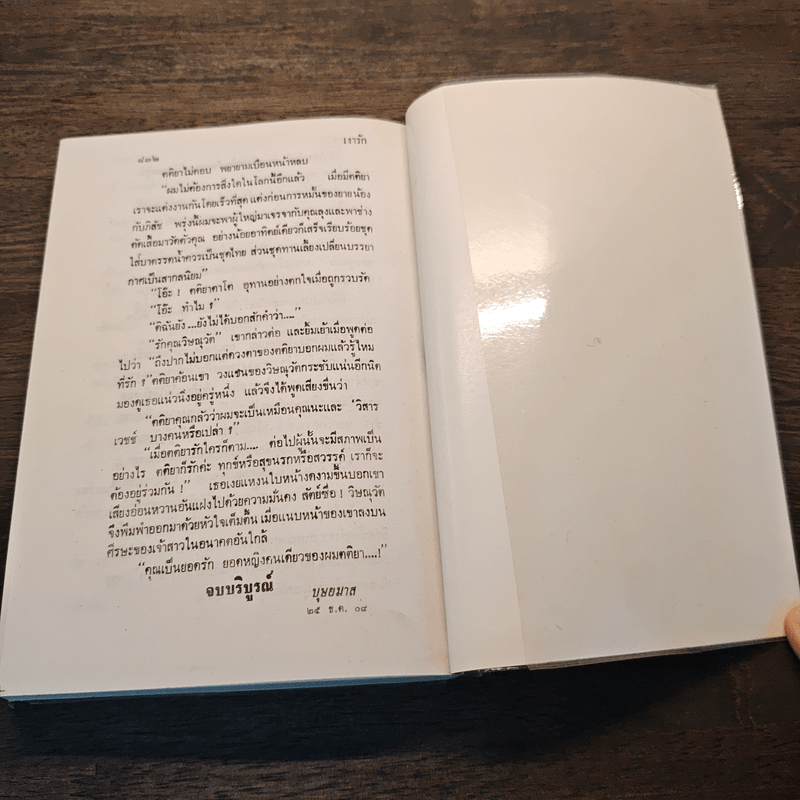 ๘๓๒ เงารัก
ตติยาไม่ตอบ พยายามเบือนหน้าหลบ
“ผมไม่ต้องการสิ่งใดในโลกนี้อีกแล้ว เมื่อมีตติยา
เราจะแต่งงานกันโดยเร็วที่สุด แต่งก่อนการหมั้นของยายน้อง
กับภิสัช พรุ่งนี้ผมจะพาผู้ใหญ่มาเจรจากับคุณลุงและพาช่าง
ตัดเสื้อมาวัดตัวคุณ อย่างน้อยอาทิตย์เดียวก็เสร็จเรียบร้อยชุด
ใส่บาตรรดน้ำควรเป็นชุดไทย ส่วนชุดทานเลี้ยงเปลี่ยนบรรยา
กาศเป็นสากลนิยม”
“โอ๊ะ ! ตติยาตาโต อุทานอย่างตกใจเมื่อถูกรวบรัด
“โอ๊ะ ทำไม ?
“ดิฉันยัง...ยังไม่ได้บอกสักคำว่า....”
“รักคุณวิษณุวัต” เขากล่าวต่อ และยิ้มเย้าเมื่อพูดต่อ
ไปว่า “ถึงปากไม่บอกแต่ดวงตาของตติยาบอกผมแล้วรู้ไหม
ที่รัก ?” ตติยาค้อนเขา วงแขนของวิษณุวัตกระชับแน่นอีกนิด
มองดูเธอแน่วนิ่งอยู่ครู่หนึ่ง แล้วจึงได้พูดเสียงขื่นว่า
“ตติยาคุณกลัวว่าผมจะเป็นเหมือนคุณนะและ ‘วิสาร
เวชช์ บางคนหรือเปล่า ?”
“เมื่อตติยารักใครก็ตาม.... ต่อไปผู้นั้นจะมีสภาพเป็น
อย่างไร ตติยาก็รักค่ะ ทุกข์หรือสุขนรกหรือสวรรค์ เราก็จะ
ต้องอยู่ร่วมกัน !” เธอเงยแหงนใบหน้างดงามขึ้นบอกเขา
เสียงอ่อนหวานอันแฝงไปด้วยความมั่นคง สัตย์ซื่อ ! วิษณุวัต
จึงพึมพำออกมาด้วยหัวใจเต็มตื้น เมื่อแนบหน้าของเขาลงบน
ศีรษะของเจ้าสาวในอนาคตอันใกล้
“คุณเป็นยอดรัก ยอดหญิงคนเดียวของผมตติยา....!”
จบบริบูรณ์
บุษยมาส
๒๕ ธ.ค. ๐๘